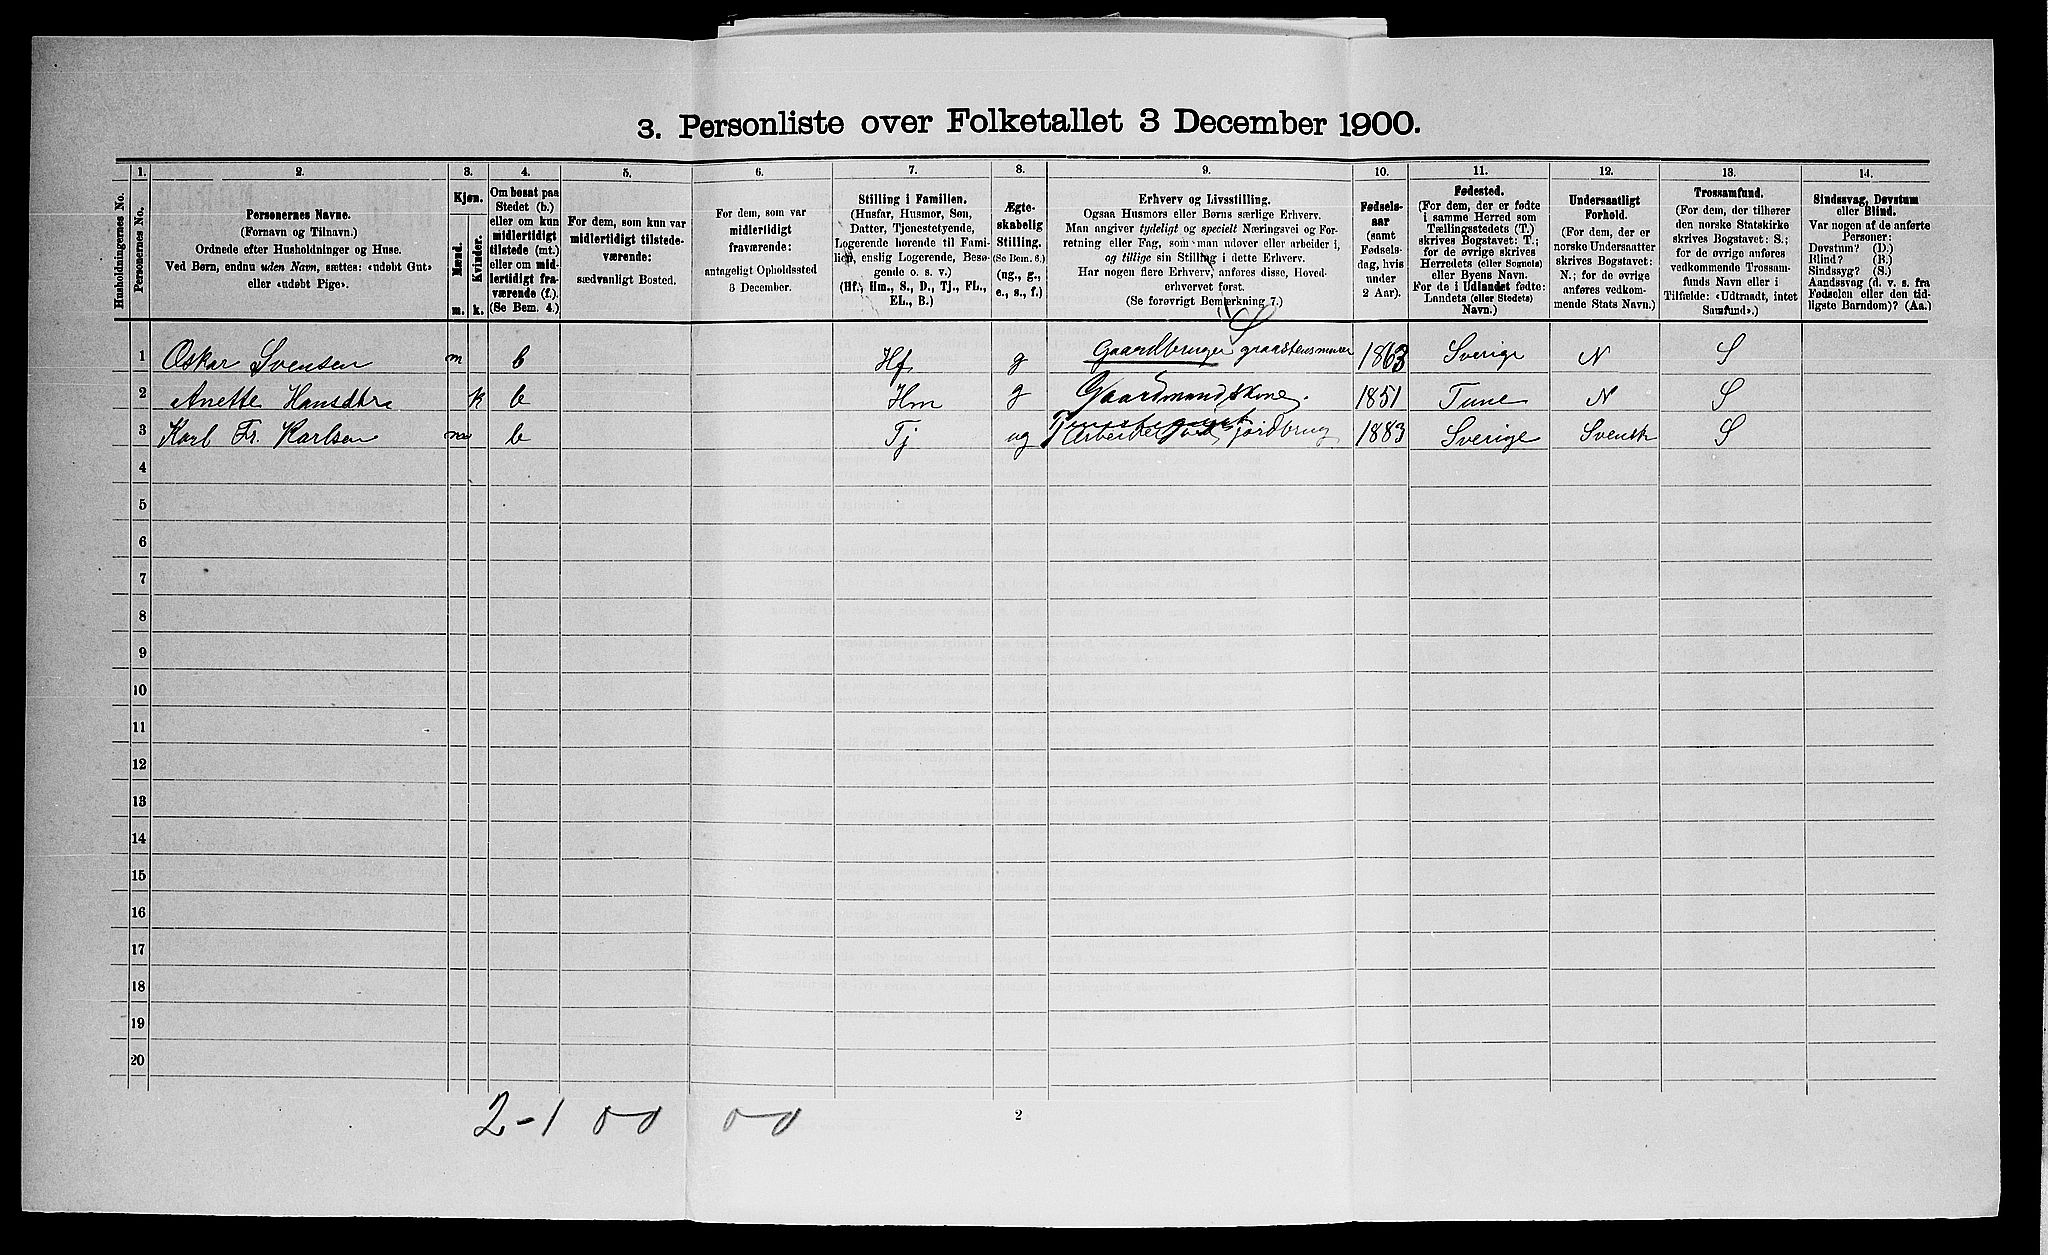 3. Personliste over Folketallet 3 December 1900.
Husholdningernes No.
1.
Personernes No.
2.
Personernes Navne.
(Fornavn og Tilnavn.)
Ordnede efter Husholdninger og Huse.
Ved Børn, endnu uden Navn, sættes: «udøbt Gut»
eller «udøbt Pige».
3.
Kjøn.
Mænd.
Kvinder.
m. k.
4.
Om bosat paa
Stedet (b.)
eller om kun
midlertidigt
tilstede (mt.)
eller om mid-
lertidigt fra-
værende (f.).
(Se Bem. 4.)
5.
For dem, som kun var
midlertidigt tilstede-
værende:
sædvanligt Bosted.
6.
For dem, som var
midlertidigt
fraværende:
antageligt Opholdssted
3 December.
7.
Stilling i Familien.
(Husfar, Husmor, Søn,
Datter, Tjenestetyende,
Logerende hørende til Fami-
lien, enslig Logerende, Besø-
gende o. s. v.)
(Hf., Hm., S., D., Tj., FL.,
EL., B.)
8.
Ægte-
skabelig
Stilling.
(Se Bem. 6.)
(ug., g.,
e., s., f.)
9.
Erhverv og Livsstilling.
Ogsaa Husmors eller Børns særlige Erhverv.
Man angiver tydeligt og specielt Næringsvei og For-
retning eller Fag, som man udøver eller arbeider i,
og tillige sin Stilling i dette Erhverv.
Har nogen flere Erhverv, anføres disse, Hoved-
erhvervet først.
(Se forøvrigt Bemerkning 7.)
10.
Fødsels-
aar
(samt
Fødsels-
dag, hvis
under
2 Aar).
11.
Fødested.
(For dem, der er fødte
i samme Herred som
Tællingsstedets (T.)
skrives Bogstavet: T.;
for de øvrige skrives
Herredets (eller Sognets)
eller Byens Navn.
For de i Udlandet fødte:
Landets (eller Stedets)
Navn.)
12.
Undersaatligt
Forhold.
(For dem, der er
norske Undersaatter
skrives Bogstavet:
N.; for de øvrige
anføres vedkom-
mende Stats Navn.)
13.
Trossamfund.
(For dem, der tilhører
den norske Statskirke
skrives Bogstavet: S.;
for de øvrige anføres
vedkommende Trossam-
funds Navn eller i
Tilfælde: «Udtraadt, intet
Samfund».)
14.
Sindssvag, Døvstum
eller Blind.
Var nogen af de anførte
Personer:
Døvstum? (D.)
Blind? (B.)
Sindssyg? (S.)
Aandssvag (d. v. s. fra
Fødselen eller den tid-
ligste Barndom)? (Aa.)
1 Oskar Svensen m b Hf g Gaardbruger S graastensmurer 1863 Sverige N S
2 Anette Hansdtre k b Hm g Gaardmandskone. 1851 Tune N S
3 Karl Fr. Karlsen m b Tj ug Arbeider ved Jordbrug 1883 Sverige Svensk S
4
5
6
7
8
9
10
11
12
13
14
15
16
17
18
19
20
2-1 0-0 0-0
2